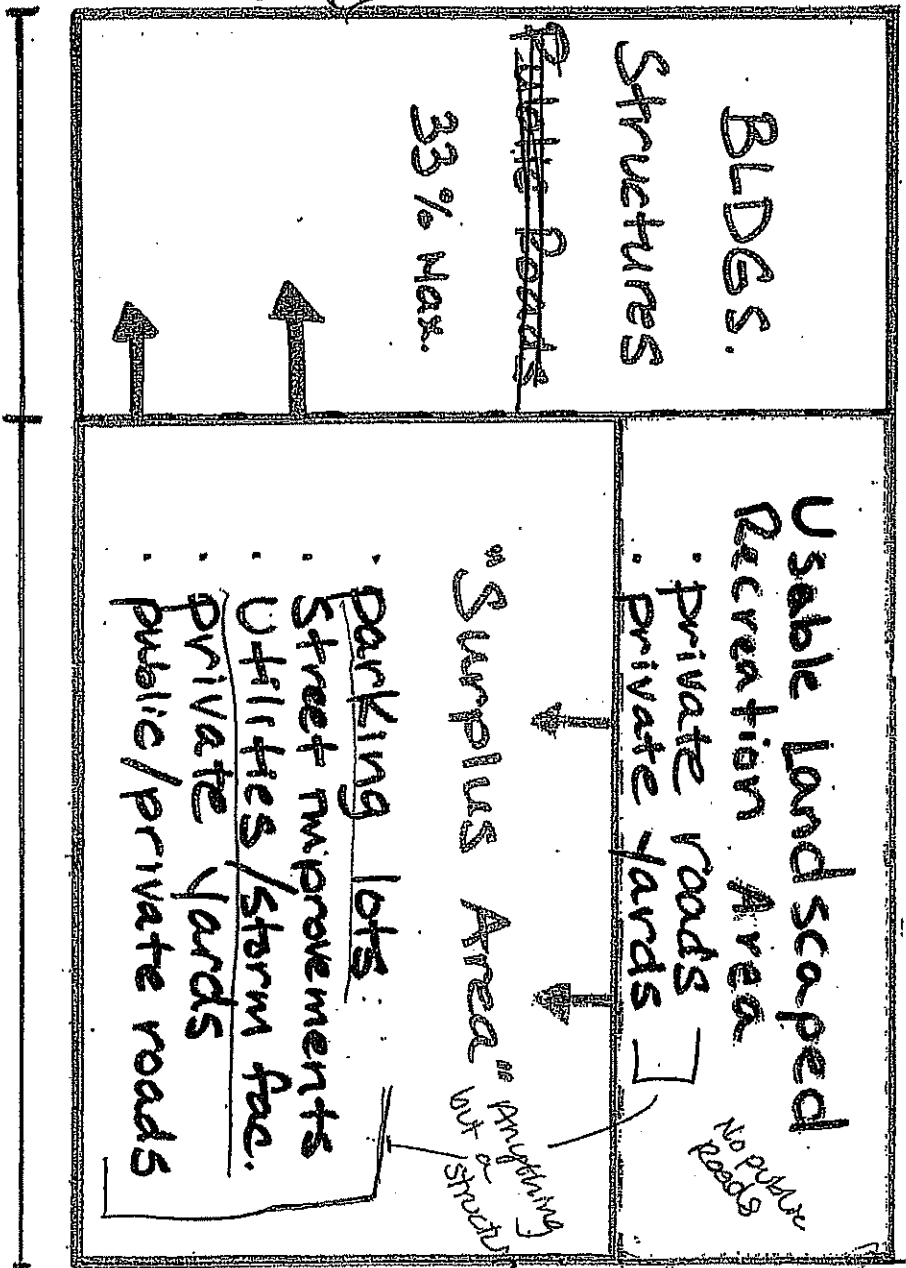 BLDGS.
Structures
Public Roads
33% Max.
Usable Landscaped
Recreation Area
· private roads
· private yards
No public
Roads
"Surplus Area"
Anything
but a
· parking lots
· Street Improvements
· Utilities/Storm fac.
· private yards
· public/private roads